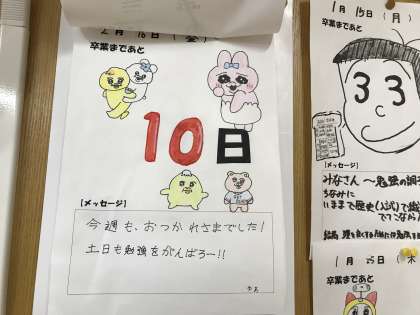 2月16日(金)
卒業まであと
10日
【メッセージ】
今週も、おつかれさまでした!
土日も勉強をがんばろー!!
1月15日(月)
卒業まであと
33
【メッセージ】
みなさん〜勉強の調
ちなみに
いままで歴史(入試)で
1月25日(木
卒業まであと